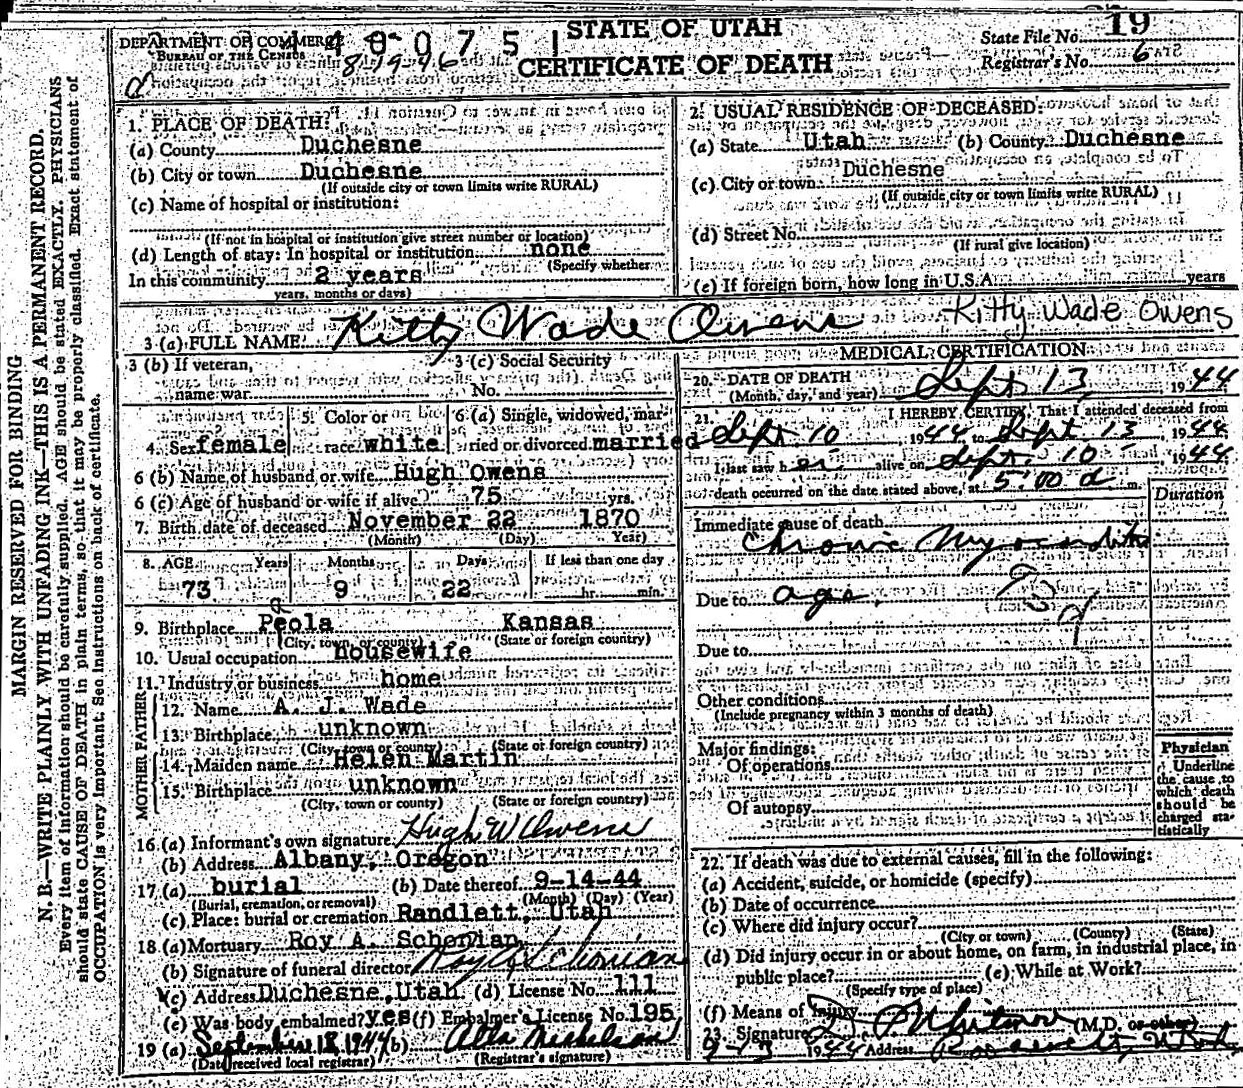 19
STATE OF UTAH
CERTIFICATE OF DEATH
DEPARTMENT OF COMMERCE
BUREAU OF THE CENSUS
State File No.
Registrar's No. 6
MARGIN RESERVED FOR BINDING
N. B.—WRITE PLAINLY WITH UNFADING INK—THIS IS A PERMANENT RECORD.
Every item of information should be carefully supplied. AGE should be stated EXACTLY. PHYSICIANS
should state CAUSE OF DEATH in plain terms, so that it may be properly classified. Exact statement of
OCCUPATION is very important. See Instructions on back of certificate.
1. PLACE OF DEATH:
(a) County Duchesne
(b) City or town Duchesne
(If outside city or town limits write RURAL)
(c) Name of hospital or institution:
(If not in hospital or institution give street number or location)
(d) Length of stay: In hospital or institution none
(Specify whether
In this community 2 years
years, months or days)
2. USUAL RESIDENCE OF DECEASED:
(a) State Utah (b) County Duchesne
(c) City or town Duchesne
(If outside city or town limits write RURAL)
(d) Street No.
(If rural give location)
(e) If foreign born, how long in U.S.A. years
3 (a) FULL NAME Kitty Wade Owens Kitty Wade Owens
3 (b) If veteran,
name war
3 (c) Social Security
No.
4. Sex female
5. Color or
race white
6 (a) Single, widowed, mar-
ried or divorced married
6 (b) Name of husband or wife Hugh Owens
6 (c) Age of husband or wife if alive 75 yrs.
7. Birth date of deceased November 22 1870
(Month) (Day) Year)
8. AGE Years Months Days If less than one day
73 9 22 hr. min.
9. Birthplace Peola Kansas
(City, town, or county) (State or foreign country)
10. Usual occupation housewife
11. Industry or business home
FATHER
12. Name A. J. Wade
13. Birthplace unknown
(City, town or county) (State or foreign country)
MOTHER
14. Maiden name Helen Martin
15. Birthplace unknown
(City, town or county) (State or foreign country)
16 (a) Informant's own signature Hugh W Owens
(b) Address Albany, Oregon
17 (a) burial (b) Date thereof 9-14-44
(Burial, cremation, or removal) (Month) (Day) (Year)
(c) Place: burial or cremation Randlett, Utah
18 (a) Mortuary Roy A. Schonian
(b) Signature of funeral director Roy A Schonian
(c) Address Duchesne, Utah (d) License No. 111
(e) Was body embalmed? yes (f) Embalmer's License No. 195
19 (a) September 18, 1944 (b) Alta
(Date received local registrar) (Registrar's signature)
MEDICAL CERTIFICATION
20. DATE OF DEATH Sept 13, 1944
(Month, day, and year)
21. I HEREBY CERTIFY, That I attended deceased from
Sept 10 1944 to Sept 13, 1944
I last saw her alive on Sept 10 1944
death occurred on the date stated above, at 5:00 a m.
Duration
Immediate cause of death
Chronic Myocarditis
Due to age.
Due to
Other conditions
(Include pregnancy within 3 months of death)
Major findings:
Of operations
Of autopsy
Physician
Underline
the cause to
which death
should be
charged sta-
tistically
22. If death was due to external causes, fill in the following:
(a) Accident, suicide, or homicide (specify)
(b) Date of occurrence
(c) Where did injury occur?
(City or town) (County) (State)
(d) Did injury occur in or about home, on farm, in industrial place, in
public place? (e) While at Work?
(Specify type of place)
(f) Means of Injury
23. Signature Whitmore (M.D. or other)
9-13 1944 Address Roosevelt, Utah